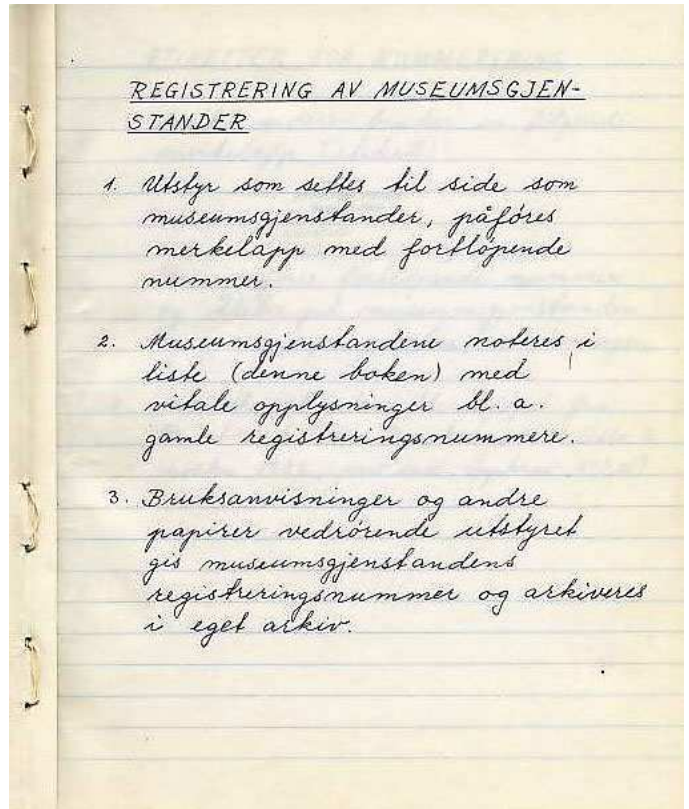 REGISTRERING AV MUSEUMSGJEN-
STANDER
1. Utstyr som settes til side som
museumsgjenstander, påföres
merkelapp med fortlöpende
nummer.
2. Museumsgjenstandene noteres i
liste (denne boken) med
vitale opplysninger bl. a.
gamle registreringsnummere.
3. Bruksanvisninger og andre
papirer vedrörende utstyret
gis museumsgjenstandens
registreringsnummer og arkiveres
i eget arkiv.